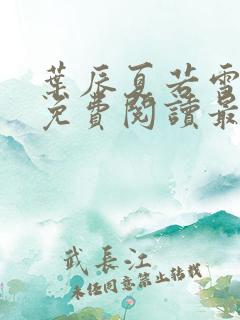 葉辰夏若雪
免費閱讀最
武長江
未經同意禁止轉載